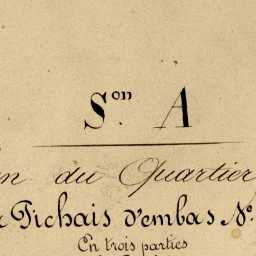 Son. A
n du Quartier
Pichais d'embas No.
En trois parties